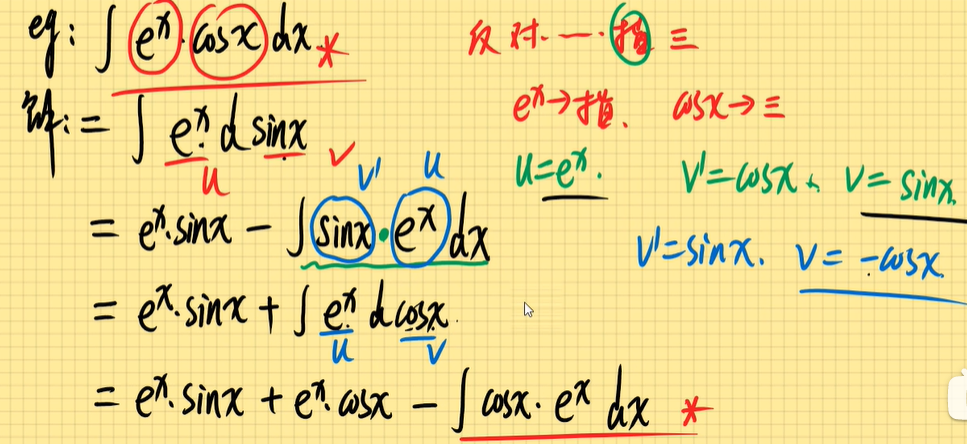 eg: ∫ eˣ·cosx dx *
反 对 一 · 指 三
解: = ∫ eˣ d sinx
eˣ→指. cosx→三
u v
u=eˣ. v'=cosx. v=sinx.
v' u
= eˣ·sinx − ∫ sinx·eˣ dx
v'=sinx. v=-cosx.
= eˣ·sinx + ∫ eˣ d cosx.
u v
= eˣ·sinx + eˣ·cosx − ∫ cosx·eˣ dx *